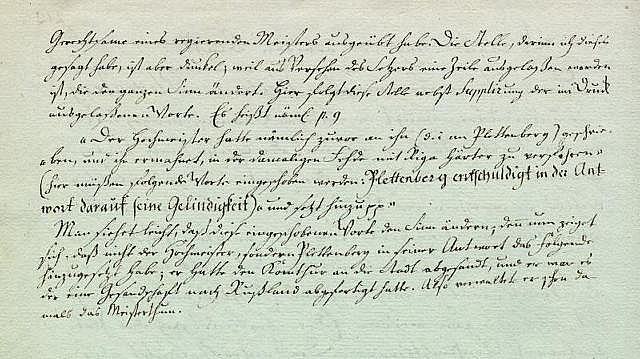 Gerechtsame eines regierenden Meisters ausgeübt habe. Die Stelle, darinn ich dieses
gesagt habe, ist aber dunkel; weil aus Versehen des Setzers eine Zeile ausgelaßen worden
ist, die den ganzen Sinn ändert. Hier folgt diese Stelle nebst Supplirung der im Druck
ausgelaßenen Worte. Es heißt näml p. 9
„Der Hochmeister hatte nämlich zuvor an ihn (d. i an Plettenberg) geschrie-
„ben, und ihn ermahnet, in der damaligen Fehde mit Riga härter zu verfahren„
(hier müßen folgende Worte eingeschoben werden: Plettenberg entschuldigt in der Ant-
wort darauf seine Gelindigkeit) „und setzt hinzu pp„
Man siehet leicht, daß diese eingeschobenen Worte den Sinn ändern; denn nun zeiget
sich, daß nicht der Hochmeister, sondern Plettenberg in seiner Antwort das folgende
hinzugesetzt habe; er hatte den Komthur an die Stadt abgesandt, und er war es
der eine Gesandschaft nach Rußland abgefertigt hatte. Also verwaltete er schon da
mals das Meisterthum.